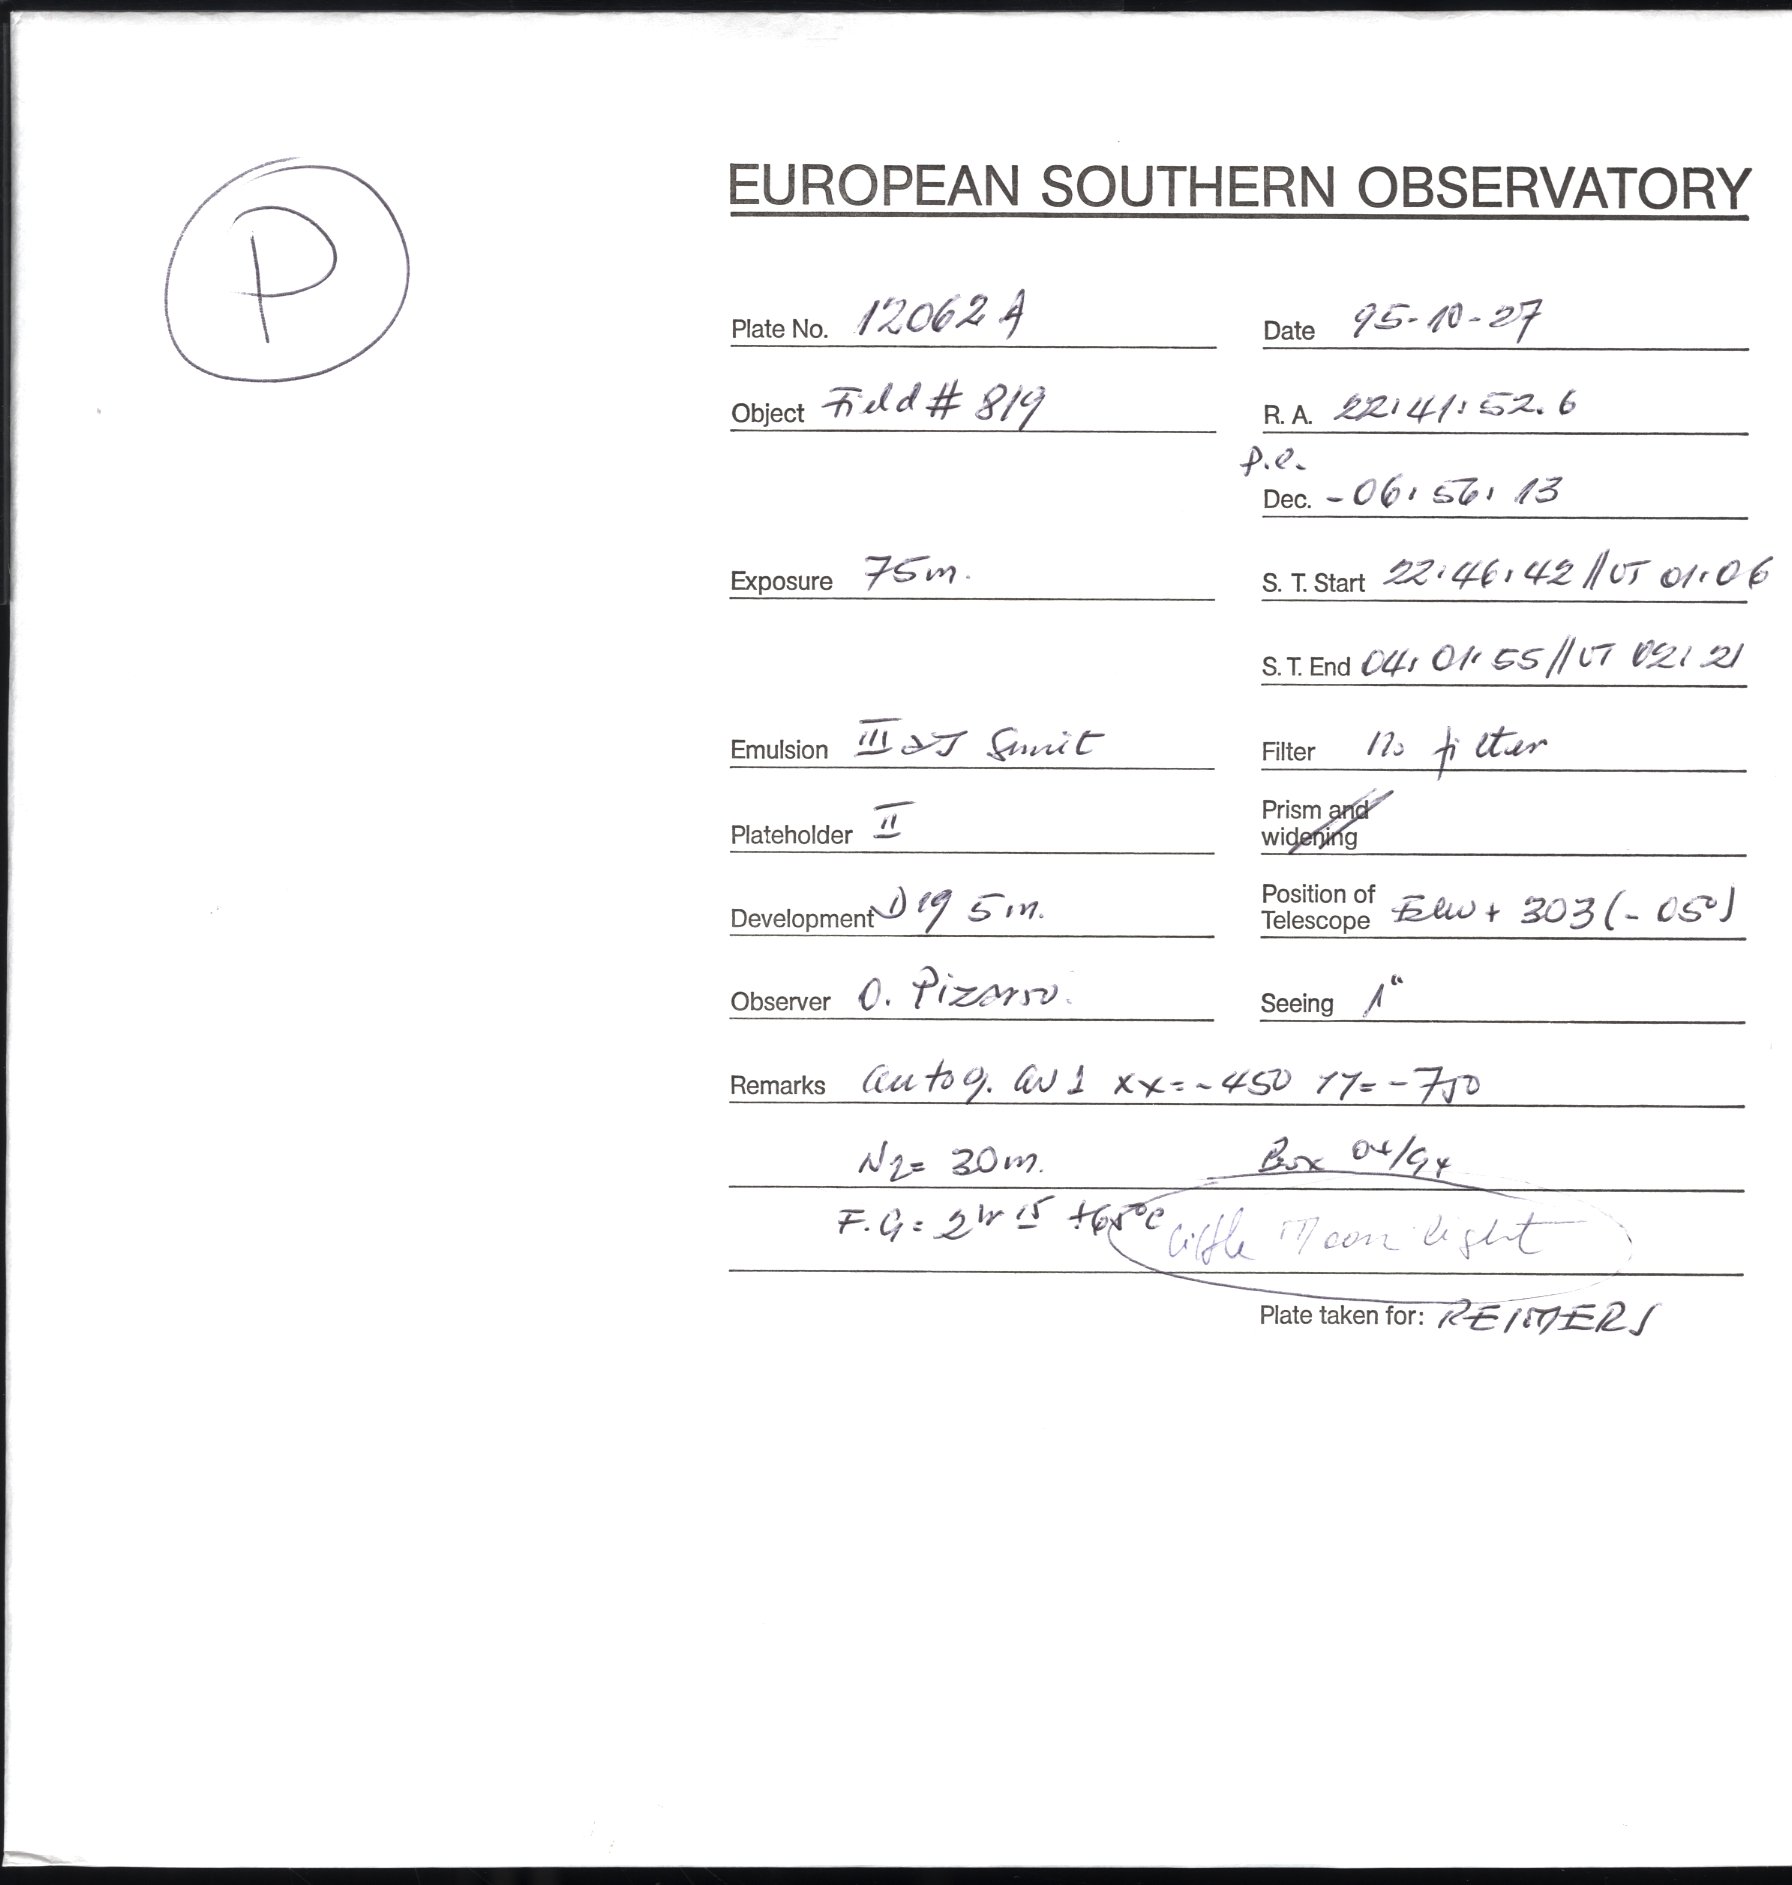 P
EUROPEAN SOUTHERN OBSERVATORY
Plate No. 12062 A Date 95-10-27
Object Field # 819 R. A. 22:41:52.6
p.e.
Dec. -06:56:13
Exposure 75m. S. T. Start 22:46:42 // UT 01:06
S. T. End 04:01:55 // UT 02:21
Emulsion III aJ Filter no filter
Plateholder II Prism and widening
Development D19 5m. Position of Telescope + 303 (-05°)
Observer O. Pizarro. Seeing 1"
Remarks autog. xx=-450 yy=-750
N2= 30m. Box 04/94
F.G= 2hr 15 +65°C Little Moon light
Plate taken for: REIMERS